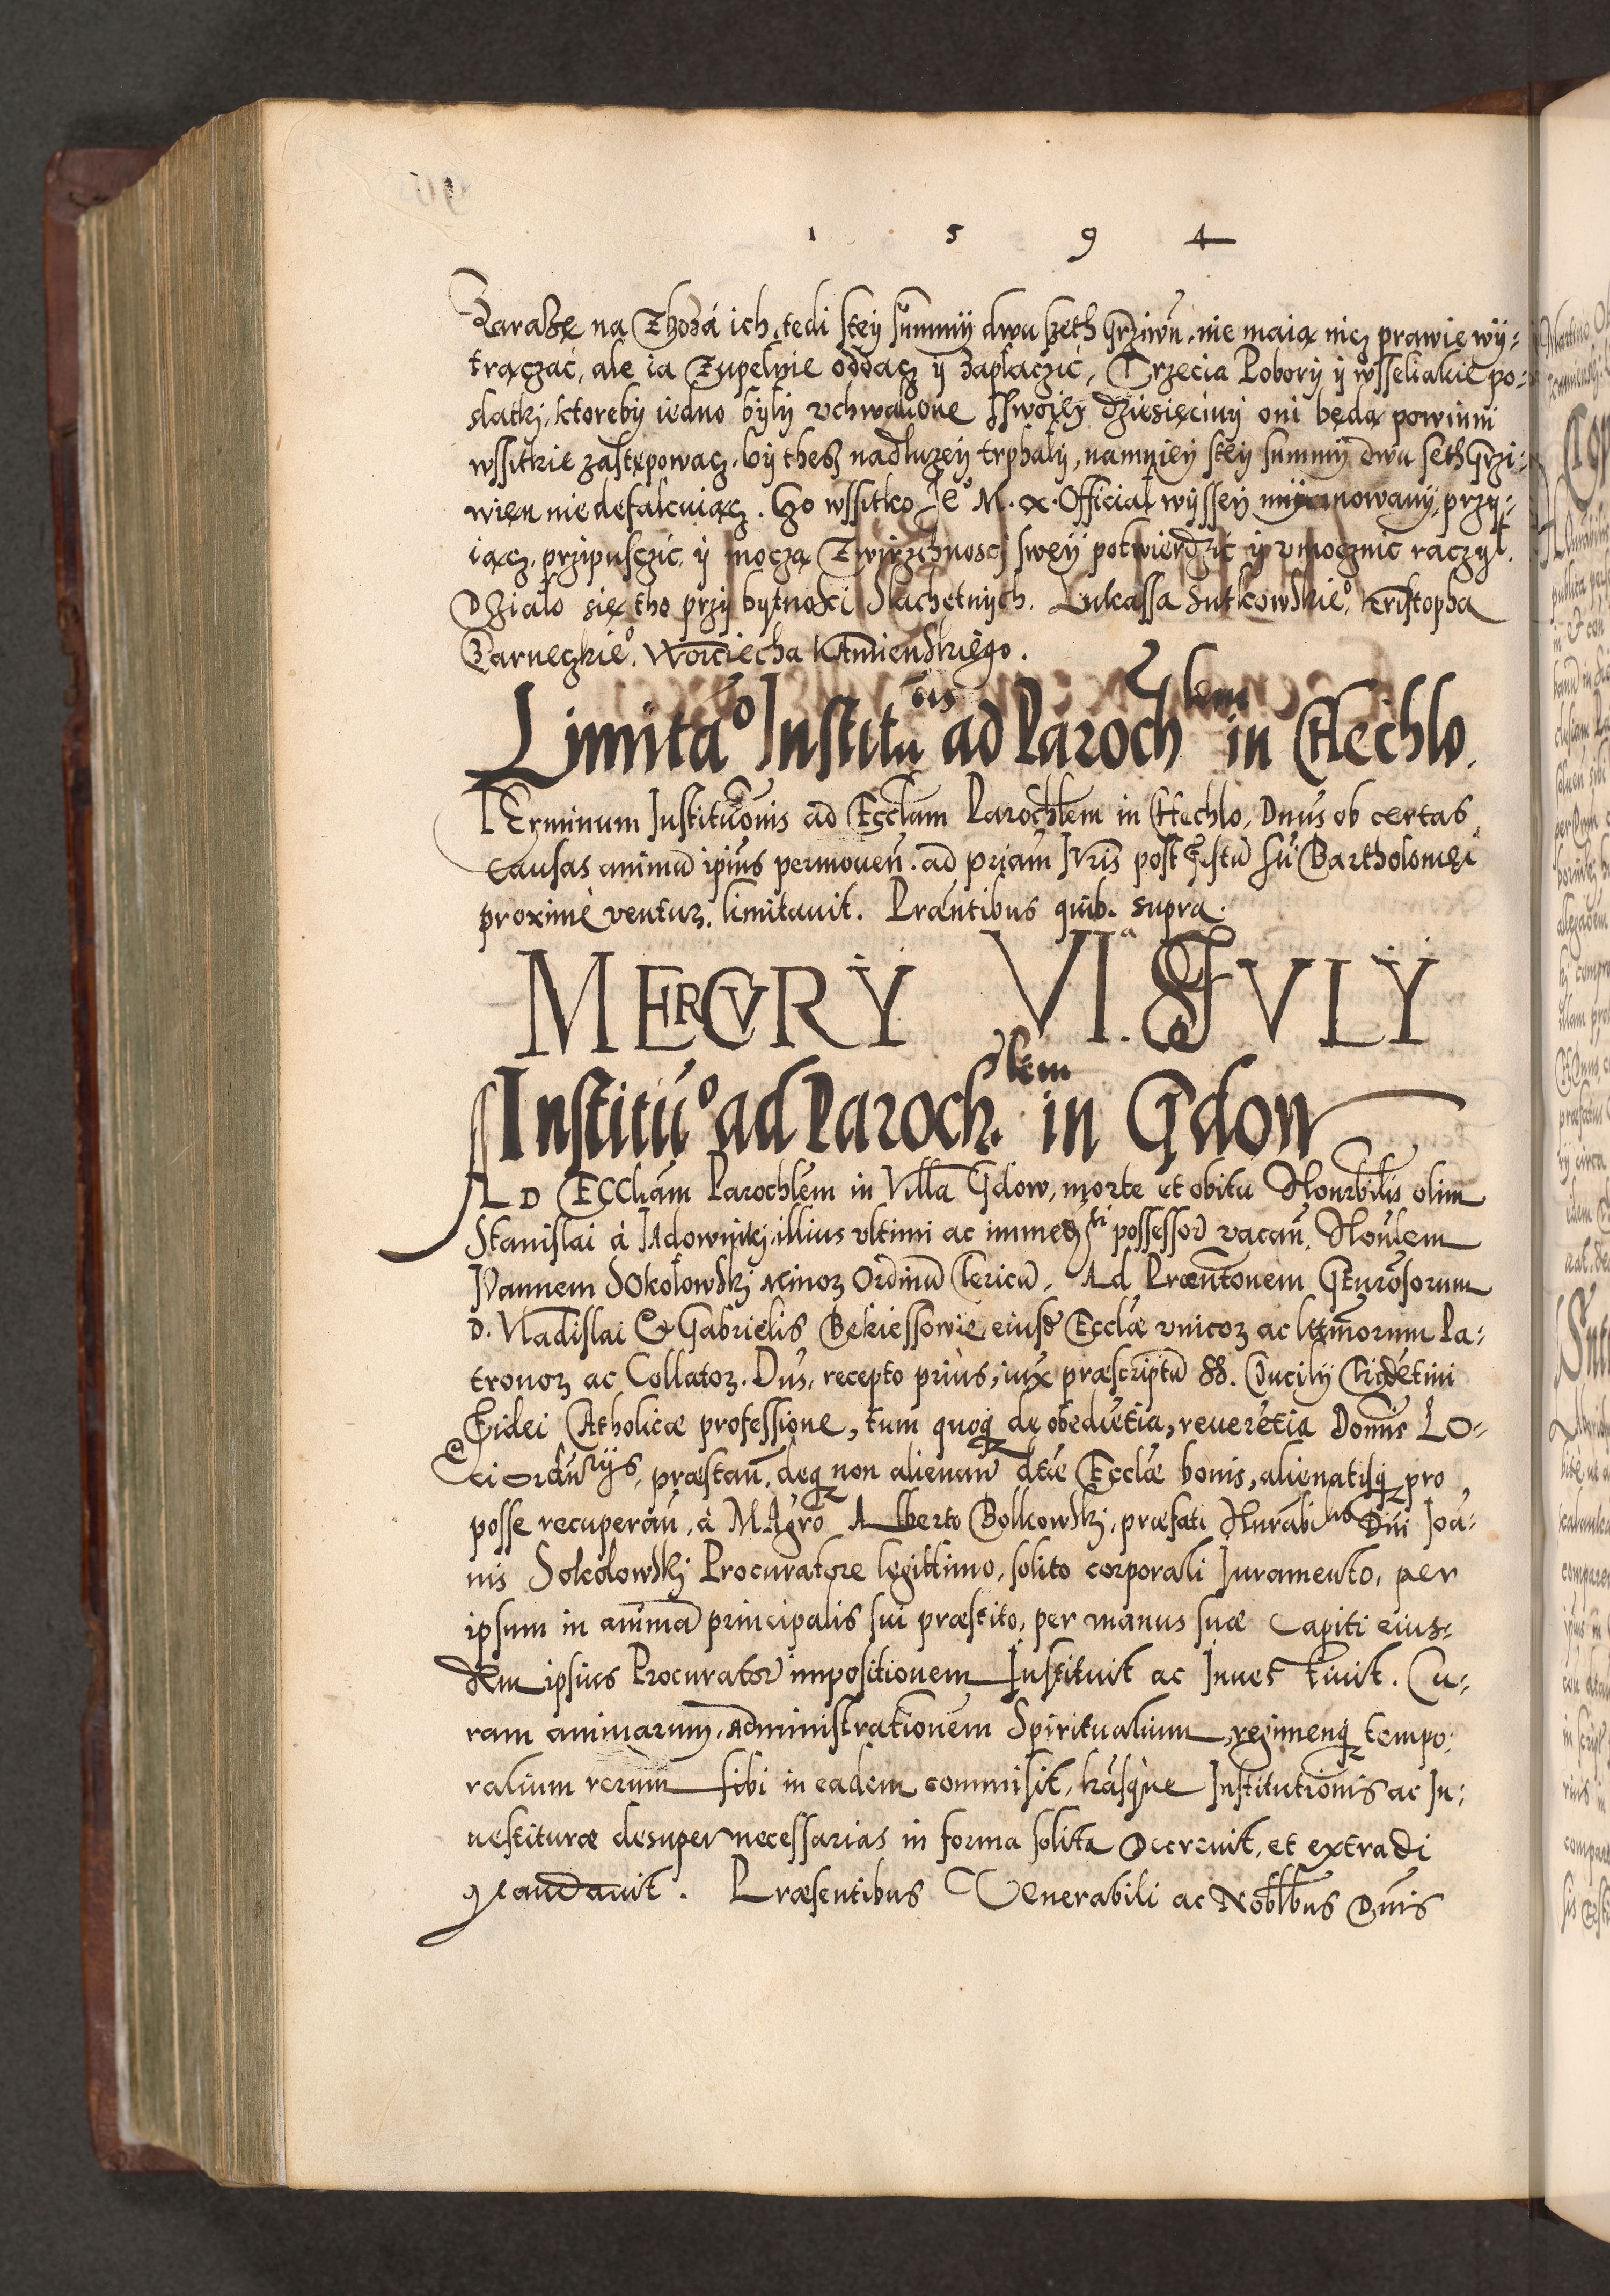 1 5 9 4
Zarazę na Zboza ich, tedi stey summy dwu szeth Grziwn, nie maią nicz prawie wy-
trączać, ale ia Zupełnie oddacz y Zapłaczić, Trzecia Pobory y wsseliakie po-
datki, ktoreby iedno były vchwalione Zswoiey dziesięciny oni będą powinni
wssitkie zastępowacz, by thesz nadłuzey trphały, namniey stey summy dwu seth Grzi-
wien nie defalcuiącz. Czo wssitko Je° M. X. Official wyssey mianowany, przy-
iącz, przipusczić, y moczą Zwirzchnosci swey potwierdzić y vmocznić raczył.
Działo się tho przy bytnosci Slachetnych. Lukassa Sutkowskie°, Kristopha
Zarneczkie°, Woiciecha Kamienskiego.
Limitā° Institūōis ad Parochlem in Chechlo.
TErminum Institūōnis ad Ecclam Parochlem in Chechlo, Dnus ob certas
causas animū ipius permoven. ad priam Iuris post festū Sti Bartholomęi
proxime ventur. limitauit. Præntibus quib. supra.
MERCVRY VI.a IVLY
Institū° ad Paroch.lem in Gdow
AD ECCliam Parochlem in Villa Gdow, morte et obitu Honrbilis olim
Stanislai à Jadowniki, illius vltimi ac immedti possessor vacan. Honlem
Joannem SOkolowski Minor Ordinū Clericū. Ad Præntonem GEnrosorum
D. Vladislai & Gabrielis Bekiessowie eiusd Ecclæ vnicor ac lttmorum Pa-
tronor ac Collator. Dns, recepto prius, iux præscriptū SS. Concily Tridētini
Fidei Catholicæ professione, tum quoq de obedietia, reueretia Domīs LO-
ci ordinrijs, præstan. deq non alienan dtæ Ecclæ bonis, alienatisq pro
posse recuperan, à MAgro Alberto Bolkowski, præfati Hnrabilis Dni Joā-
nis Sokolowski Procuratore legittimo, solito corporali Iuramento, per
ipsum in animā principalis sui præstito, per manus suæ Capiti eius-
dem ipsius Procurator impositionem Instituit ac Inuestiuit. Cu-
ram animarum, administrationem Spiritualium, regimenq tempo-
ralium rerum sibi in eadem commisit, hasque Institutionis ac In-
uestituræ desuper necessarias in forma solita Decreuit, et extradi
mandauit. Præsentibus Venerabili ac Noblbus Dnis